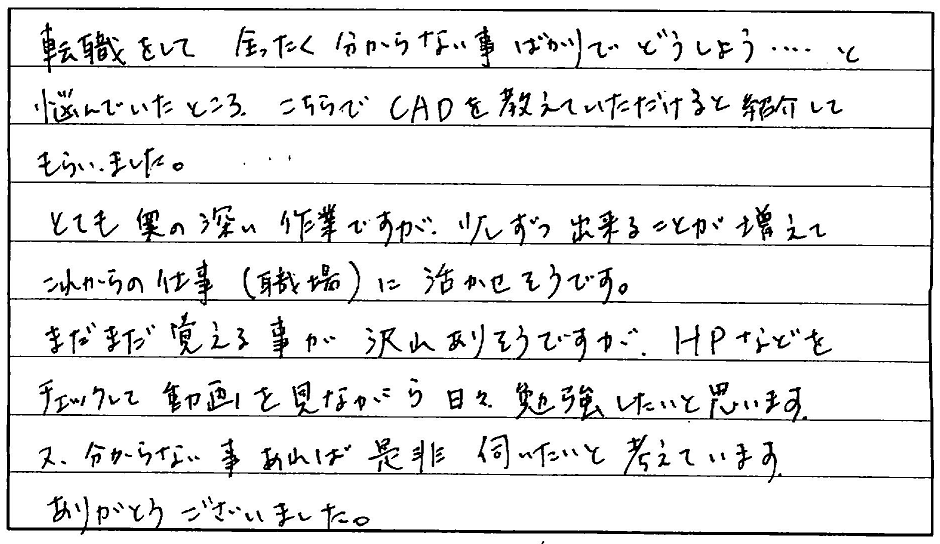 転職をして 全ったく 分からない事 ばかりで どうしよう‥‥ と
悩んでいたところ、こちらで CADを 教えていただけると 紹介して
もらいました。
とても 奥の深い 作業ですが、少しずつ 出来ることが 増えて
これからの 仕事 (職場) に 活かせそうです。
まだまだ 覚える 事が 沢山 ありそうですが、HPなどを
チェックして 動画を 見ながら 日々 勉強したいと 思います。
又、分からない 事 あれば 是非 伺いたいと 考えています。
ありがとう ございました。